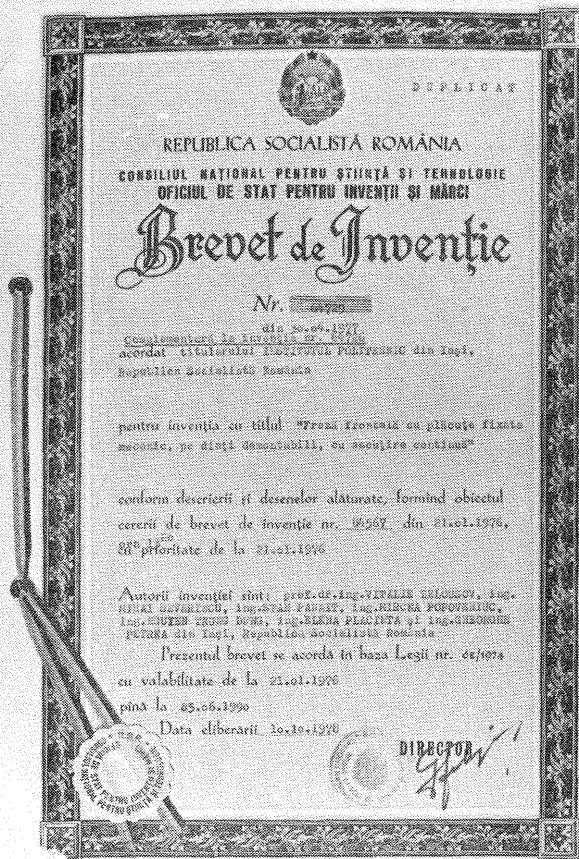 DUPLICAT
REPUBLICA SOCIALISTĂ ROMÂNIA
CONSILIUL NAȚIONAL PENTRU ȘTIINȚĂ ȘI TEHNOLOGIE
OFICIUL DE STAT PENTRU INVENȚII ȘI MĂRCI
Brevet de Invenție
Nr.
din 30.04.1977
Complementară la invenția nr.
acordat titularului INSTITUTUL POLITEHNIC din Iași,
Republica Socialistă România
pentru invenția cu titlul "Freză frontală cu plăcuțe fixate
mecanic, pe dinți demontabili, cu ascuțire continuă"
conform descrierii și desenelor alăturate, formînd obiectul
cererii de brevet de invenție nr. 84567 din 21.01.1976,
cu prioritate de la 21.01.1976
Autorii invenției sînt: prof.dr.ing.VITALIE BELOUSOV, ing.
MIHAI SEVERINCU, ing.STAN PANAIT, ing.MIRCEA POPOVENIUC,
ing.NGUYEN TRUNG DUNG, ing.ELENA PLACINTA și ing.GHEORGHE
PETREA din Iași, Republica Socialistă România
Prezentul brevet se acordă în baza Legii nr. 62/1974
cu valabilitate de la 21.01.1976
pînă la 05.06.1990
Data eliberării 10.10.1978
DIRECTOR